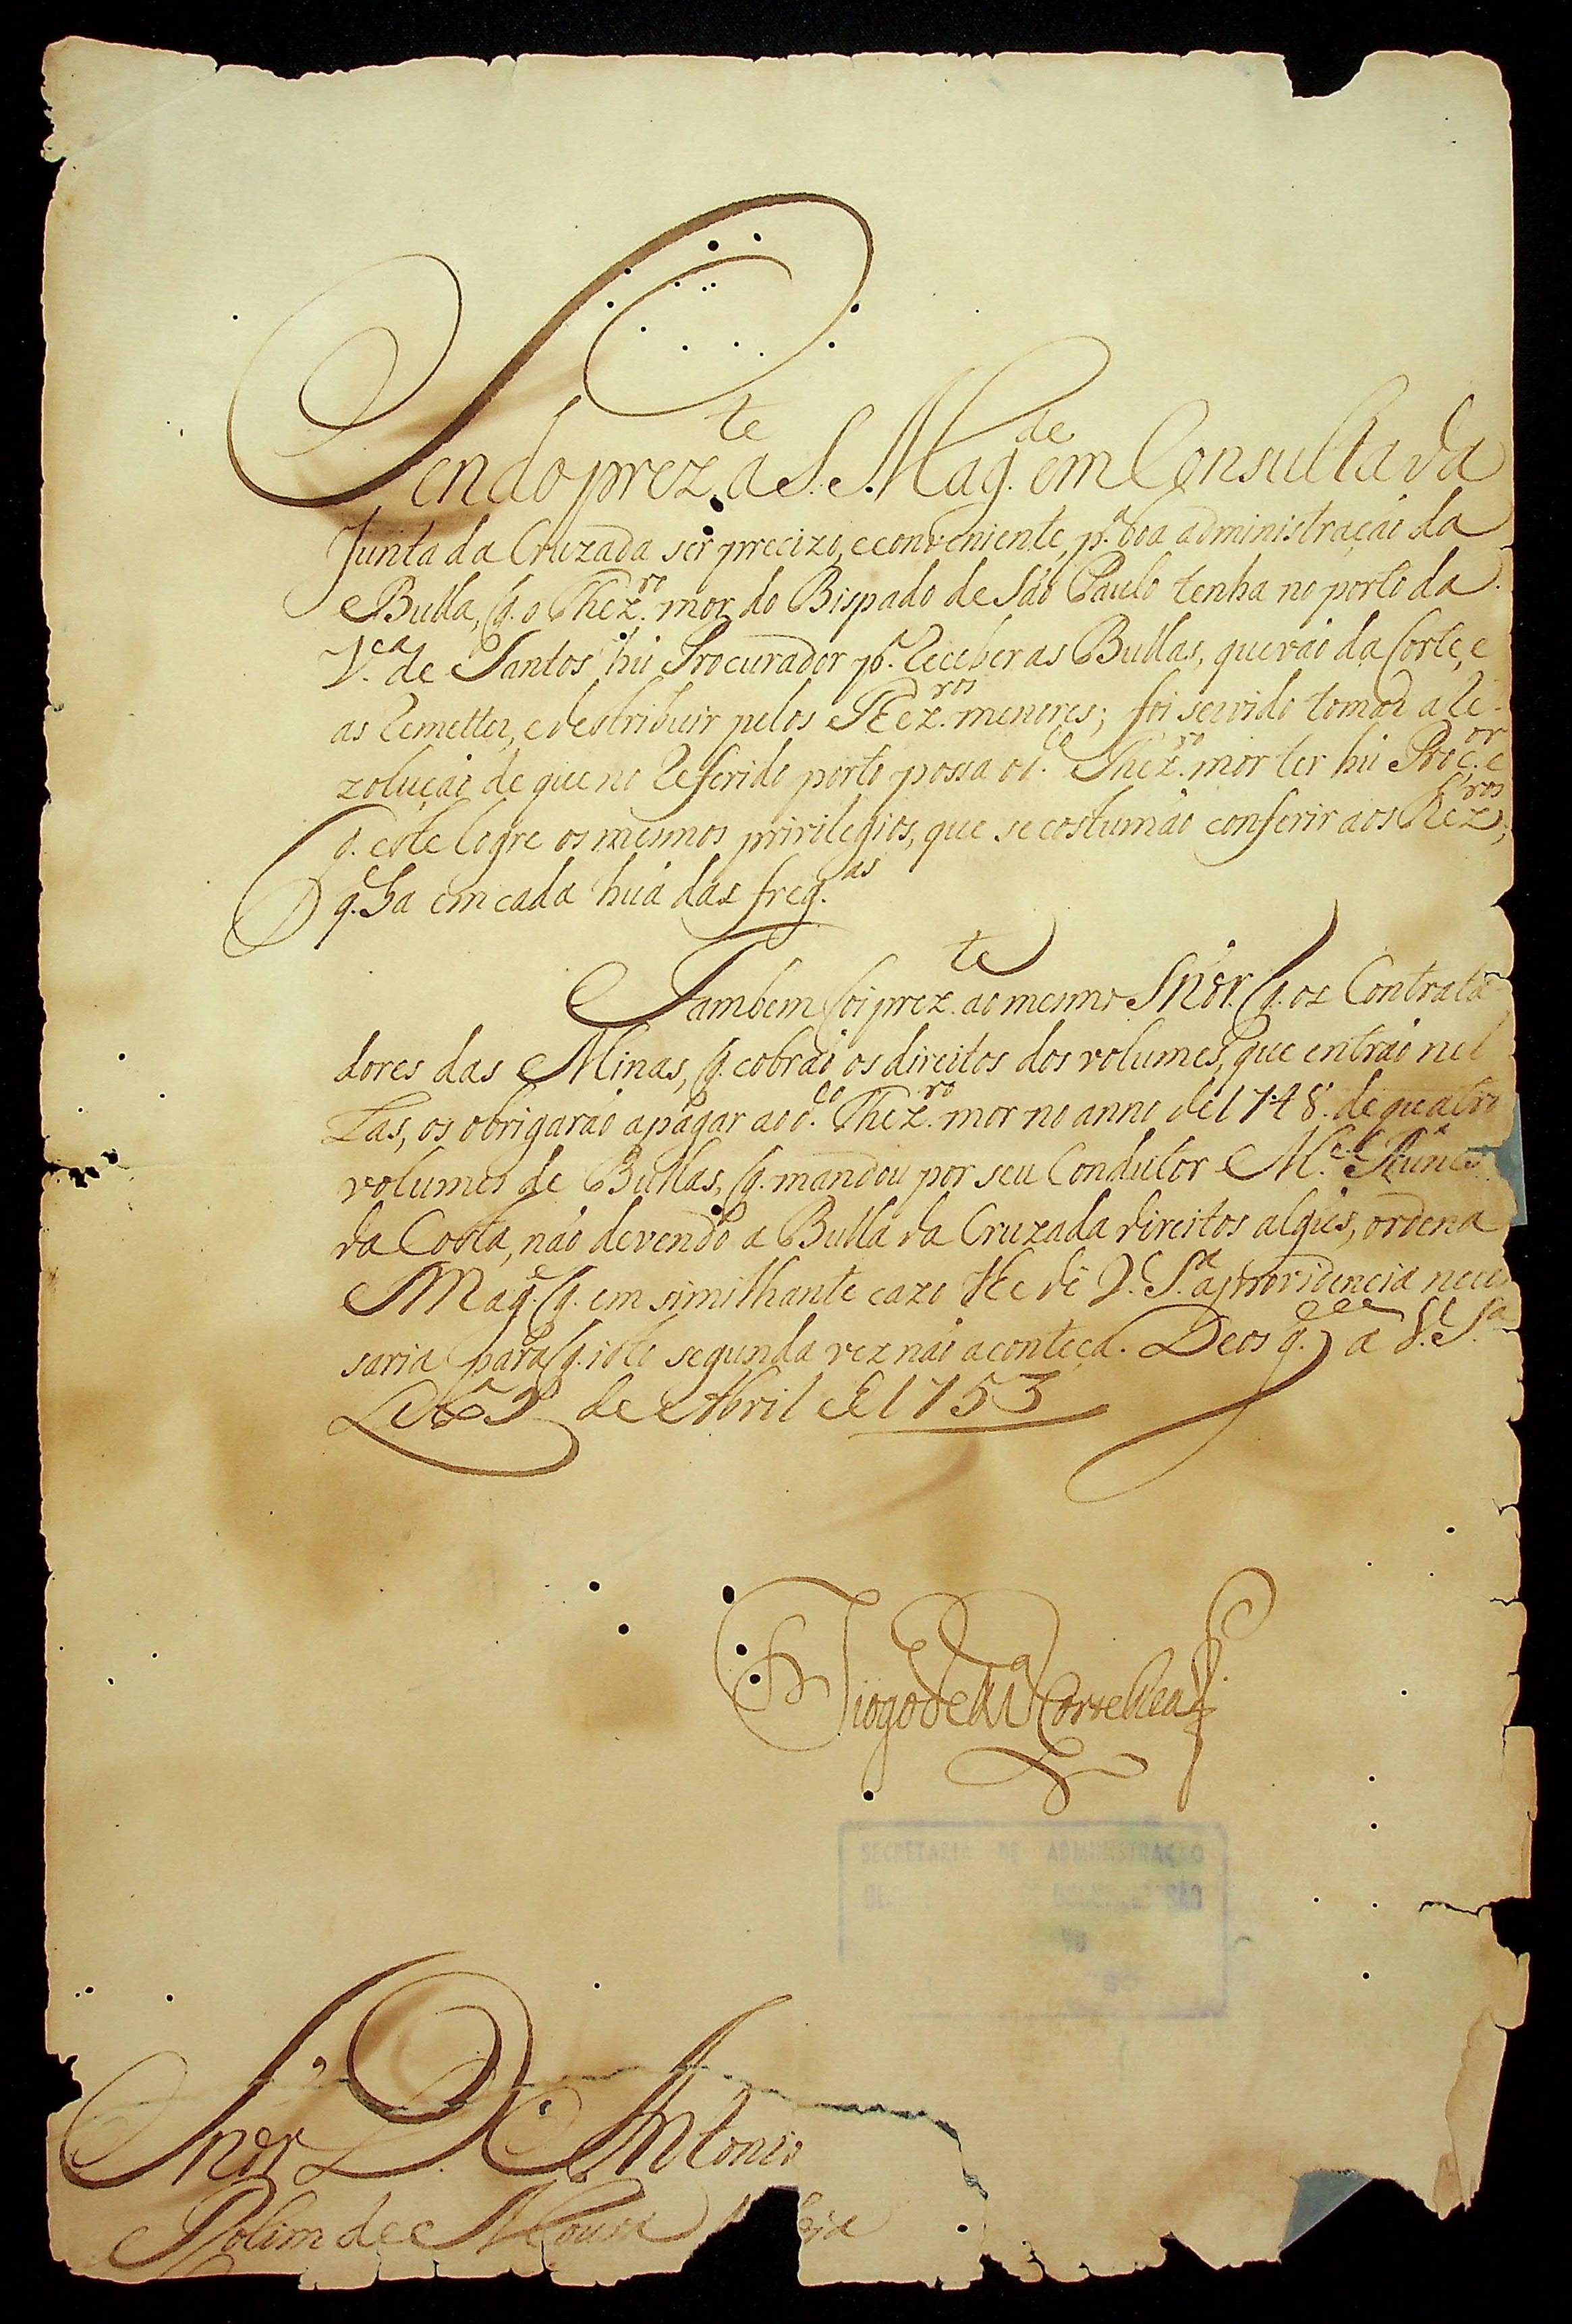 Sendo prez.te a S. Mag.de em Consulta da
Junta da Cruzada ser precizo, e conveniente p.a boa administração da
Bulla, q. o Thez.ro mor do Bispado de São Paulo tenha no porto da
V.ca de Santos hũ Procurador p.a receber as Bullas, que vão da Corte, e
as remetter, e destribuir pelos Thez.ros menores; foi servido tomar a re-
zolução de que no referido porto possa o d.o Thez.ro mor ter hũ Proc.or e
q. este logre os mesmos privilegios, que se costumão conferir aos Thez.ros,
q. ha em cada huã das freg.as
Tambem foi prez.te ao mesmo Snõr. q. os Contrata-
dores das Minas, q. cobrão os direitos dos volumes, que entrão nel
las, os obrigarão a pagar ao d.o Thez.ro mor no anno de 1748. de quatro
volumes de Bullas, q. mandou por seu Condutor M.el
da Costa, não devendo a Bulla da Cruzada direitos algũs, ordena
S. Mag.e q. em similhante cazo lhe dê V. S.a a providencia nece
saria para q. isto segunda vez não aconteça. Deos g.e a V. S.a
Lx.a 9 de Abril de 1753
Diogo de M.ça Corte Real
SECRETARIA DE ADMINISTRAÇÃO
Snõr D. Antonio
Rolim de Moura